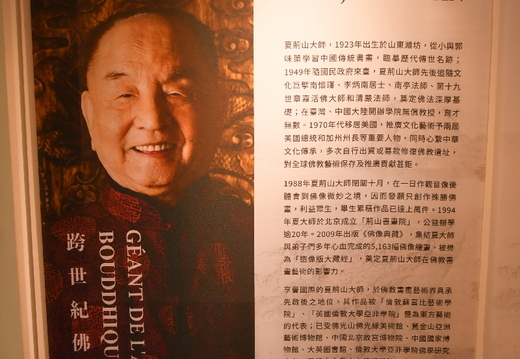 夏荊山大師，1923年出生於山東濰坊，從小與郭
味蕖學習中國傳統書畫，臨摹歷代傳世名跡；
1949年隨國民政府來臺，夏荊山大師先後追隨文
化巨擘南懷瑾、李炳南居士、南亭法師、第十九
世章嘉活佛大師和清嚴法師，奠定佛法深厚基
礎；在臺灣、中國大陸開辦學院無償教授，育才
無數。1970年代移居美國，推廣文化藝術予兩屆
美國總統和加州州長等重要人物，同時心繫中華
文化傳承，多次自行出資或募款修復佛教遺址，
對全球佛教藝術保存及推廣貢獻甚鉅。
1988年夏荊山大師閉關十月，在一日作觀音像後
體會到佛像微妙之境，因而發願只創作殊勝佛
畫，利益眾生，畢生累積作品已達上萬件。1994
年夏大師於北京成立「荊山書畫院」，公益辦學
逾20年。2009年出版《佛像典藏》，集結夏大師
與弟子們多年心血完成的5,163幅佛像繪畫，被譽
為「造像版大藏經」，奠定夏荊山大師在佛教書
畫藝術的影響力。
享譽國際的夏荊山大師，於佛教書畫藝術界具承
先啟後之地位，其作品被「倫敦蘇富比藝術學
院」、「英國倫敦大學亞非學院」譽為東方藝術
的代表；已受佛光山佛光緣美術館、舊金山亞洲
藝術博物館、中國北京故宮博物院、中國國家博
物館、大英圖書館、倫敦大學亞非學院佛學研究
跨世紀佛
GÉANT DE L'A
BOUDDHIQU